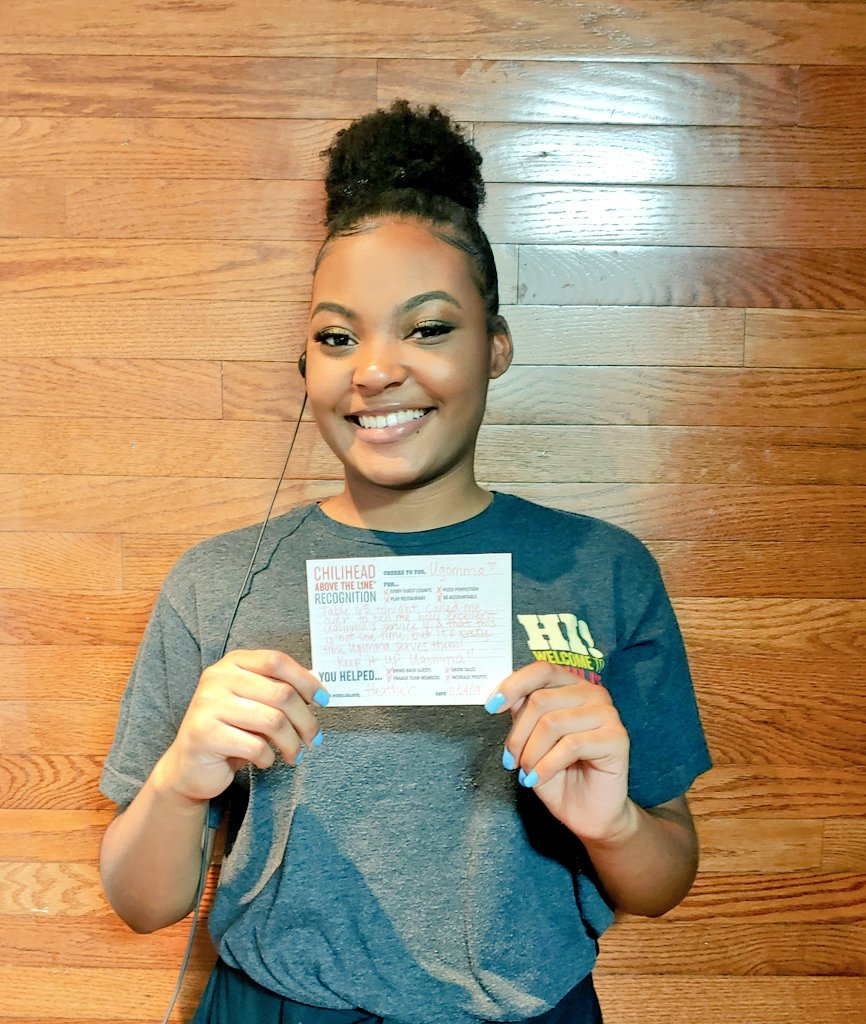 CHILIHEAD
ABOVE THE LINE
RECOGNITION
CHEERS TO YOU, Ugomma
FOR...
EVERY GUEST COUNTS FOOD PERFECTION
PLAY RESTAURANT BE ACCOUNTABLE
Table 65 tonight called me
over to tell me how excellent
Ugomma's service is & that this
is not one time, but it's every
time Ugomma serves them!
Keep it up Ugomma!!
YOU HELPED...
BRING BACK GUESTS GROW SALES
ENGAGE TEAM MEMBERS INCREASE PROFITS
#CHILISLOVE, Heather DATE
HI!
WELCOME TO